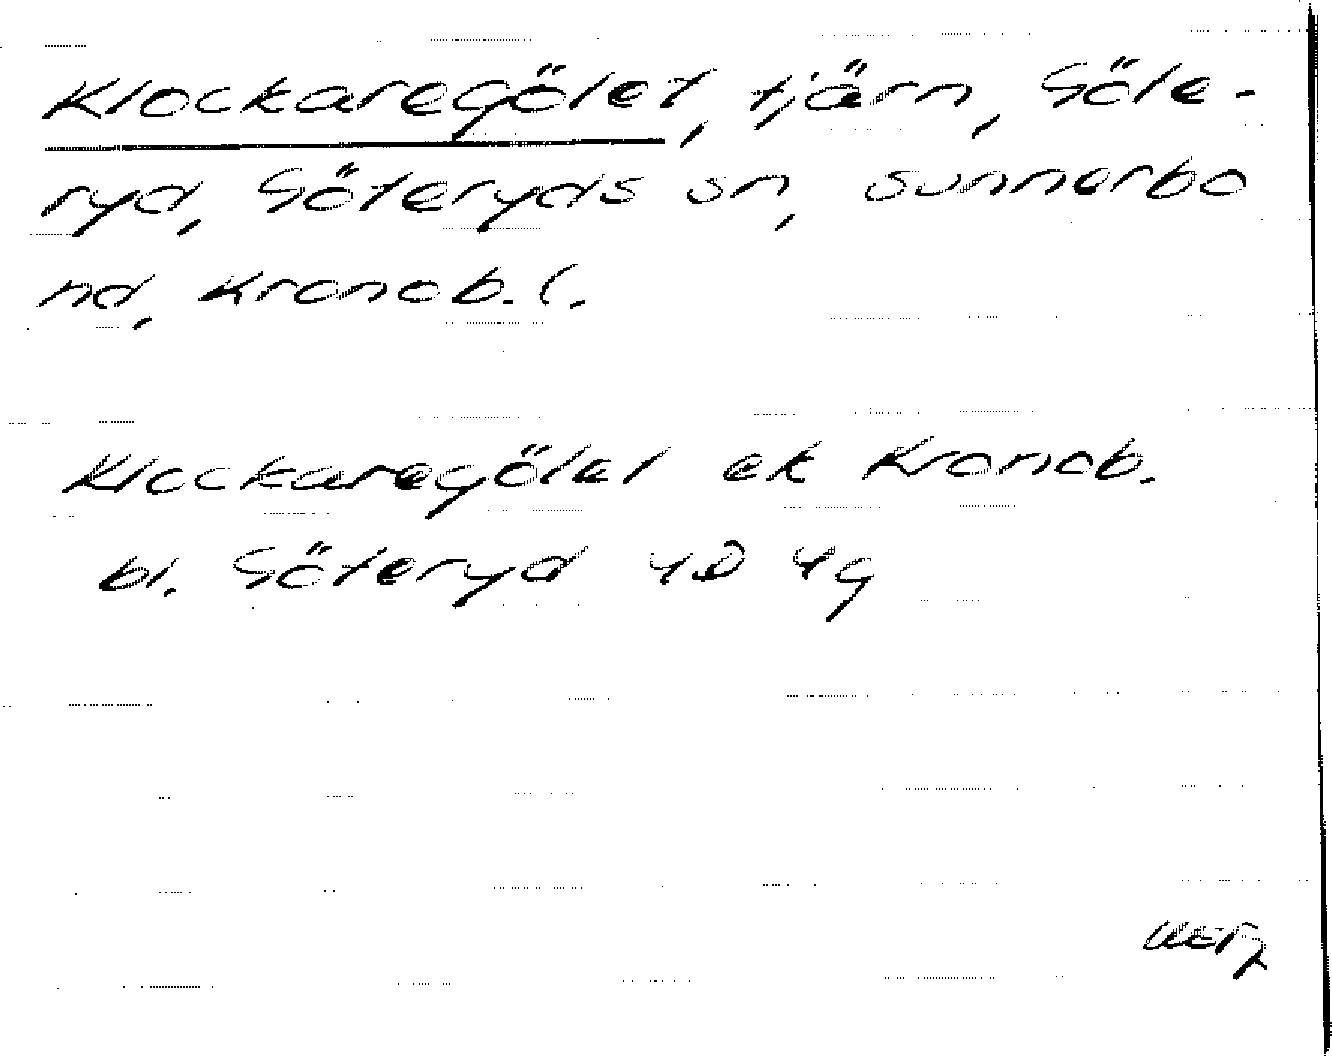 Klockaregölet, tjärn, Göte-
ryd, Göteryds sn, Sunnerbo
hd, Kronob. l.
Klockaregölet ek Kronob.
bl. Göteryd 4D 4g